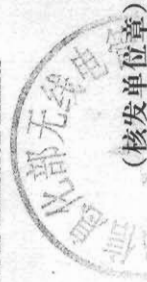 息化部无线电管
(核发单位章)